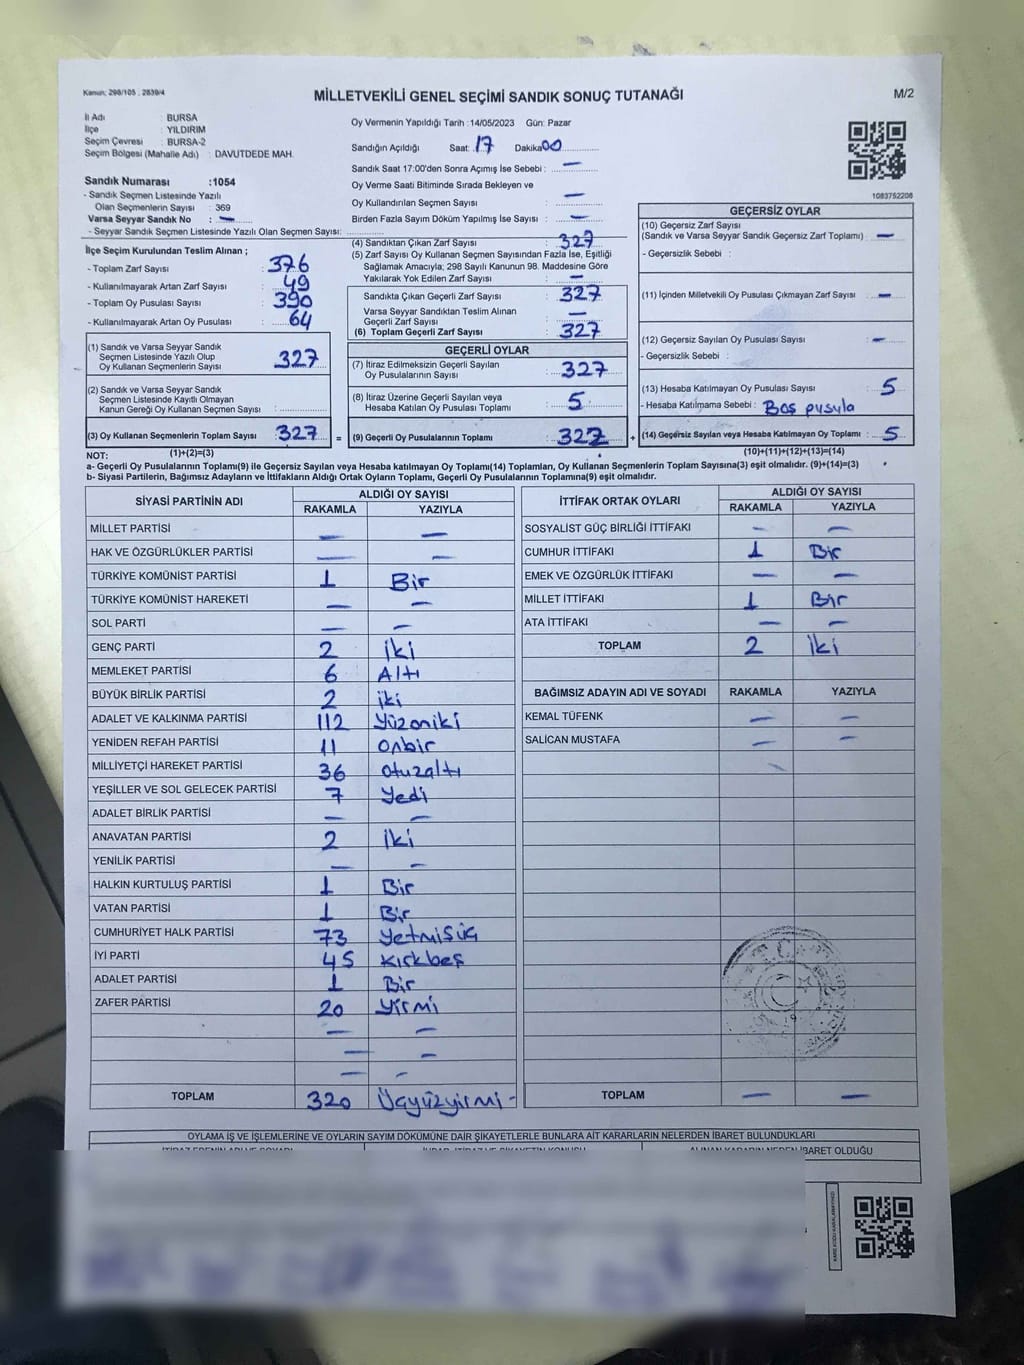 Kanun: 298/105 ; 2839/4
MİLLETVEKİLİ GENEL SEÇİMİ SANDIK SONUÇ TUTANAĞI
M/2
İl Adı : BURSA
İlçe : YILDIRIM
Seçim Çevresi : BURSA-2
Seçim Bölgesi (Mahalle Adı) : DAVUTDEDE MAH.
Sandık Numarası :1054
- Sandık Seçmen Listesinde Yazılı
Olan Seçmenlerin Sayısı : 369
Varsa Seyyar Sandık No : —
- Seyyar Sandık Seçmen Listesinde Yazılı Olan Seçmen Sayısı:
İlçe Seçim Kurulundan Teslim Alınan ;
- Toplam Zarf Sayısı : 376
- Kullanılmayarak Artan Zarf Sayısı : 49
- Toplam Oy Pusulası Sayısı : 390
- Kullanılmayarak Artan Oy Pusulası : 64
(1) Sandık ve Varsa Seyyar Sandık
Seçmen Listesinde Yazılı Olup
Oy Kullanan Seçmenlerin Sayısı : 327
(2) Sandık ve Varsa Seyyar Sandık
Seçmen Listesinde Kayıtlı Olmayan
Kanun Gereği Oy Kullanan Seçmen Sayısı :
(3) Oy Kullanan Seçmenlerin Toplam Sayısı : 327 =
(1)+(2)=(3)
Oy Vermenin Yapıldığı Tarih :14/05/2023 Gün: Pazar
Sandığın Açıldığı Saat: 17 Dakika 00
Sandık Saat 17:00'den Sonra Açmış İse Sebebi : —
Oy Verme Saati Bitiminde Sırada Bekleyen ve
Oy Kullandırılan Seçmen Sayısı : —
Birden Fazla Sayım Döküm Yapılmış İse Sayısı : —
(4) Sandıktan Çıkan Zarf Sayısı : 327
(5) Zarf Sayısı Oy Kullanan Seçmen Sayısından Fazla İse, Eşitliği
Sağlamak Amacıyla; 298 Sayılı Kanunun 98. Maddesine Göre
Yakılarak Yok Edilen Zarf Sayısı : —
Sandıkta Çıkan Geçerli Zarf Sayısı : 327
Varsa Seyyar Sandıktan Teslim Alınan
Geçerli Zarf Sayısı : —
(6) Toplam Geçerli Zarf Sayısı : 327
GEÇERLİ OYLAR
(7) İtiraz Edilmeksizin Geçerli Sayılan
Oy Pusulalarının Sayısı : 327
(8) İtiraz Üzerine Geçerli Sayılan veya
Hesaba Katılan Oy Pusulası Toplamı : 5
(9) Geçerli Oy Pusulalarının Toplamı : 322 +
1083752208
GEÇERSİZ OYLAR
(10) Geçersiz Zarf Sayısı
(Sandık ve Varsa Seyyar Sandık Geçersiz Zarf Toplamı) : —
- Geçersizlik Sebebi :
(11) İçinden Milletvekili Oy Pusulası Çıkmayan Zarf Sayısı : —
(12) Geçersiz Sayılan Oy Pusulası Sayısı : —
- Geçersizlik Sebebi :
(13) Hesaba Katılmayan Oy Pusulası Sayısı : 5
- Hesaba Katılmama Sebebi : Boş pusula
(14) Geçersiz Sayılan veya Hesaba Katılmayan Oy Toplamı : 5
(10)+(11)+(12)+(13)=(14)
NOT:
a- Geçerli Oy Pusulalarının Toplamı(9) ile Geçersiz Sayılan veya Hesaba katılmayan Oy Toplamı(14) Toplamları, Oy Kullanan Seçmenlerin Toplam Sayısına(3) eşit olmalıdır. (9)+(14)=(3)
b- Siyasi Partilerin, Bağımsız Adayların ve İttifakların Aldığı Ortak Oyların Toplamı, Geçerli Oy Pusulalarının Toplamına(9) eşit olmalıdır.
SİYASİ PARTİNİN ADI ALDIĞI OY SAYISI
RAKAMLA YAZIYLA
MİLLET PARTİSİ — —
HAK VE ÖZGÜRLÜKLER PARTİSİ — —
TÜRKİYE KOMÜNİST PARTİSİ 1 Bir
TÜRKİYE KOMÜNİST HAREKETİ — —
SOL PARTİ — —
GENÇ PARTİ 2 iki
MEMLEKET PARTİSİ 6 Altı
BÜYÜK BİRLİK PARTİSİ 2 iki
ADALET VE KALKINMA PARTİSİ 112 Yüzoniki
YENİDEN REFAH PARTİSİ 11 onbir
MİLLİYETÇİ HAREKET PARTİSİ 36 otuzaltı
YEŞİLLER VE SOL GELECEK PARTİSİ 7 Yedi
ADALET BİRLİK PARTİSİ — —
ANAVATAN PARTİSİ 2 iki
YENİLİK PARTİSİ — —
HALKIN KURTULUŞ PARTİSİ 1 Bir
VATAN PARTİSİ 1 Bir
CUMHURİYET HALK PARTİSİ 73 Yetmişüç
İYİ PARTİ 45 Kırkbeş
ADALET PARTİSİ 1 Bir
ZAFER PARTİSİ 20 Yirmi
— —
— —
— —
TOPLAM 320 Üçyüzyirmi-
İTTİFAK ORTAK OYLARI ALDIĞI OY SAYISI
RAKAMLA YAZIYLA
SOSYALİST GÜÇ BİRLİĞİ İTTİFAKI — —
CUMHUR İTTİFAKI 1 Bir
EMEK VE ÖZGÜRLÜK İTTİFAKI — —
MİLLET İTTİFAKI 1 Bir
ATA İTTİFAKI — —
TOPLAM 2 iki
BAĞIMSIZ ADAYIN ADI VE SOYADI RAKAMLA YAZIYLA
KEMAL TÜFENK — —
SALİCAN MUSTAFA — —
T.C.
TOPLAM — —
OYLAMA İŞ VE İŞLEMLERİNE VE OYLARIN SAYIM DÖKÜMÜNE DAİR ŞİKAYETLERLE BUNLARA AİT KARARLARIN NELERDEN İBARET BULUNDUKLARI
İBARET OLDUĞU